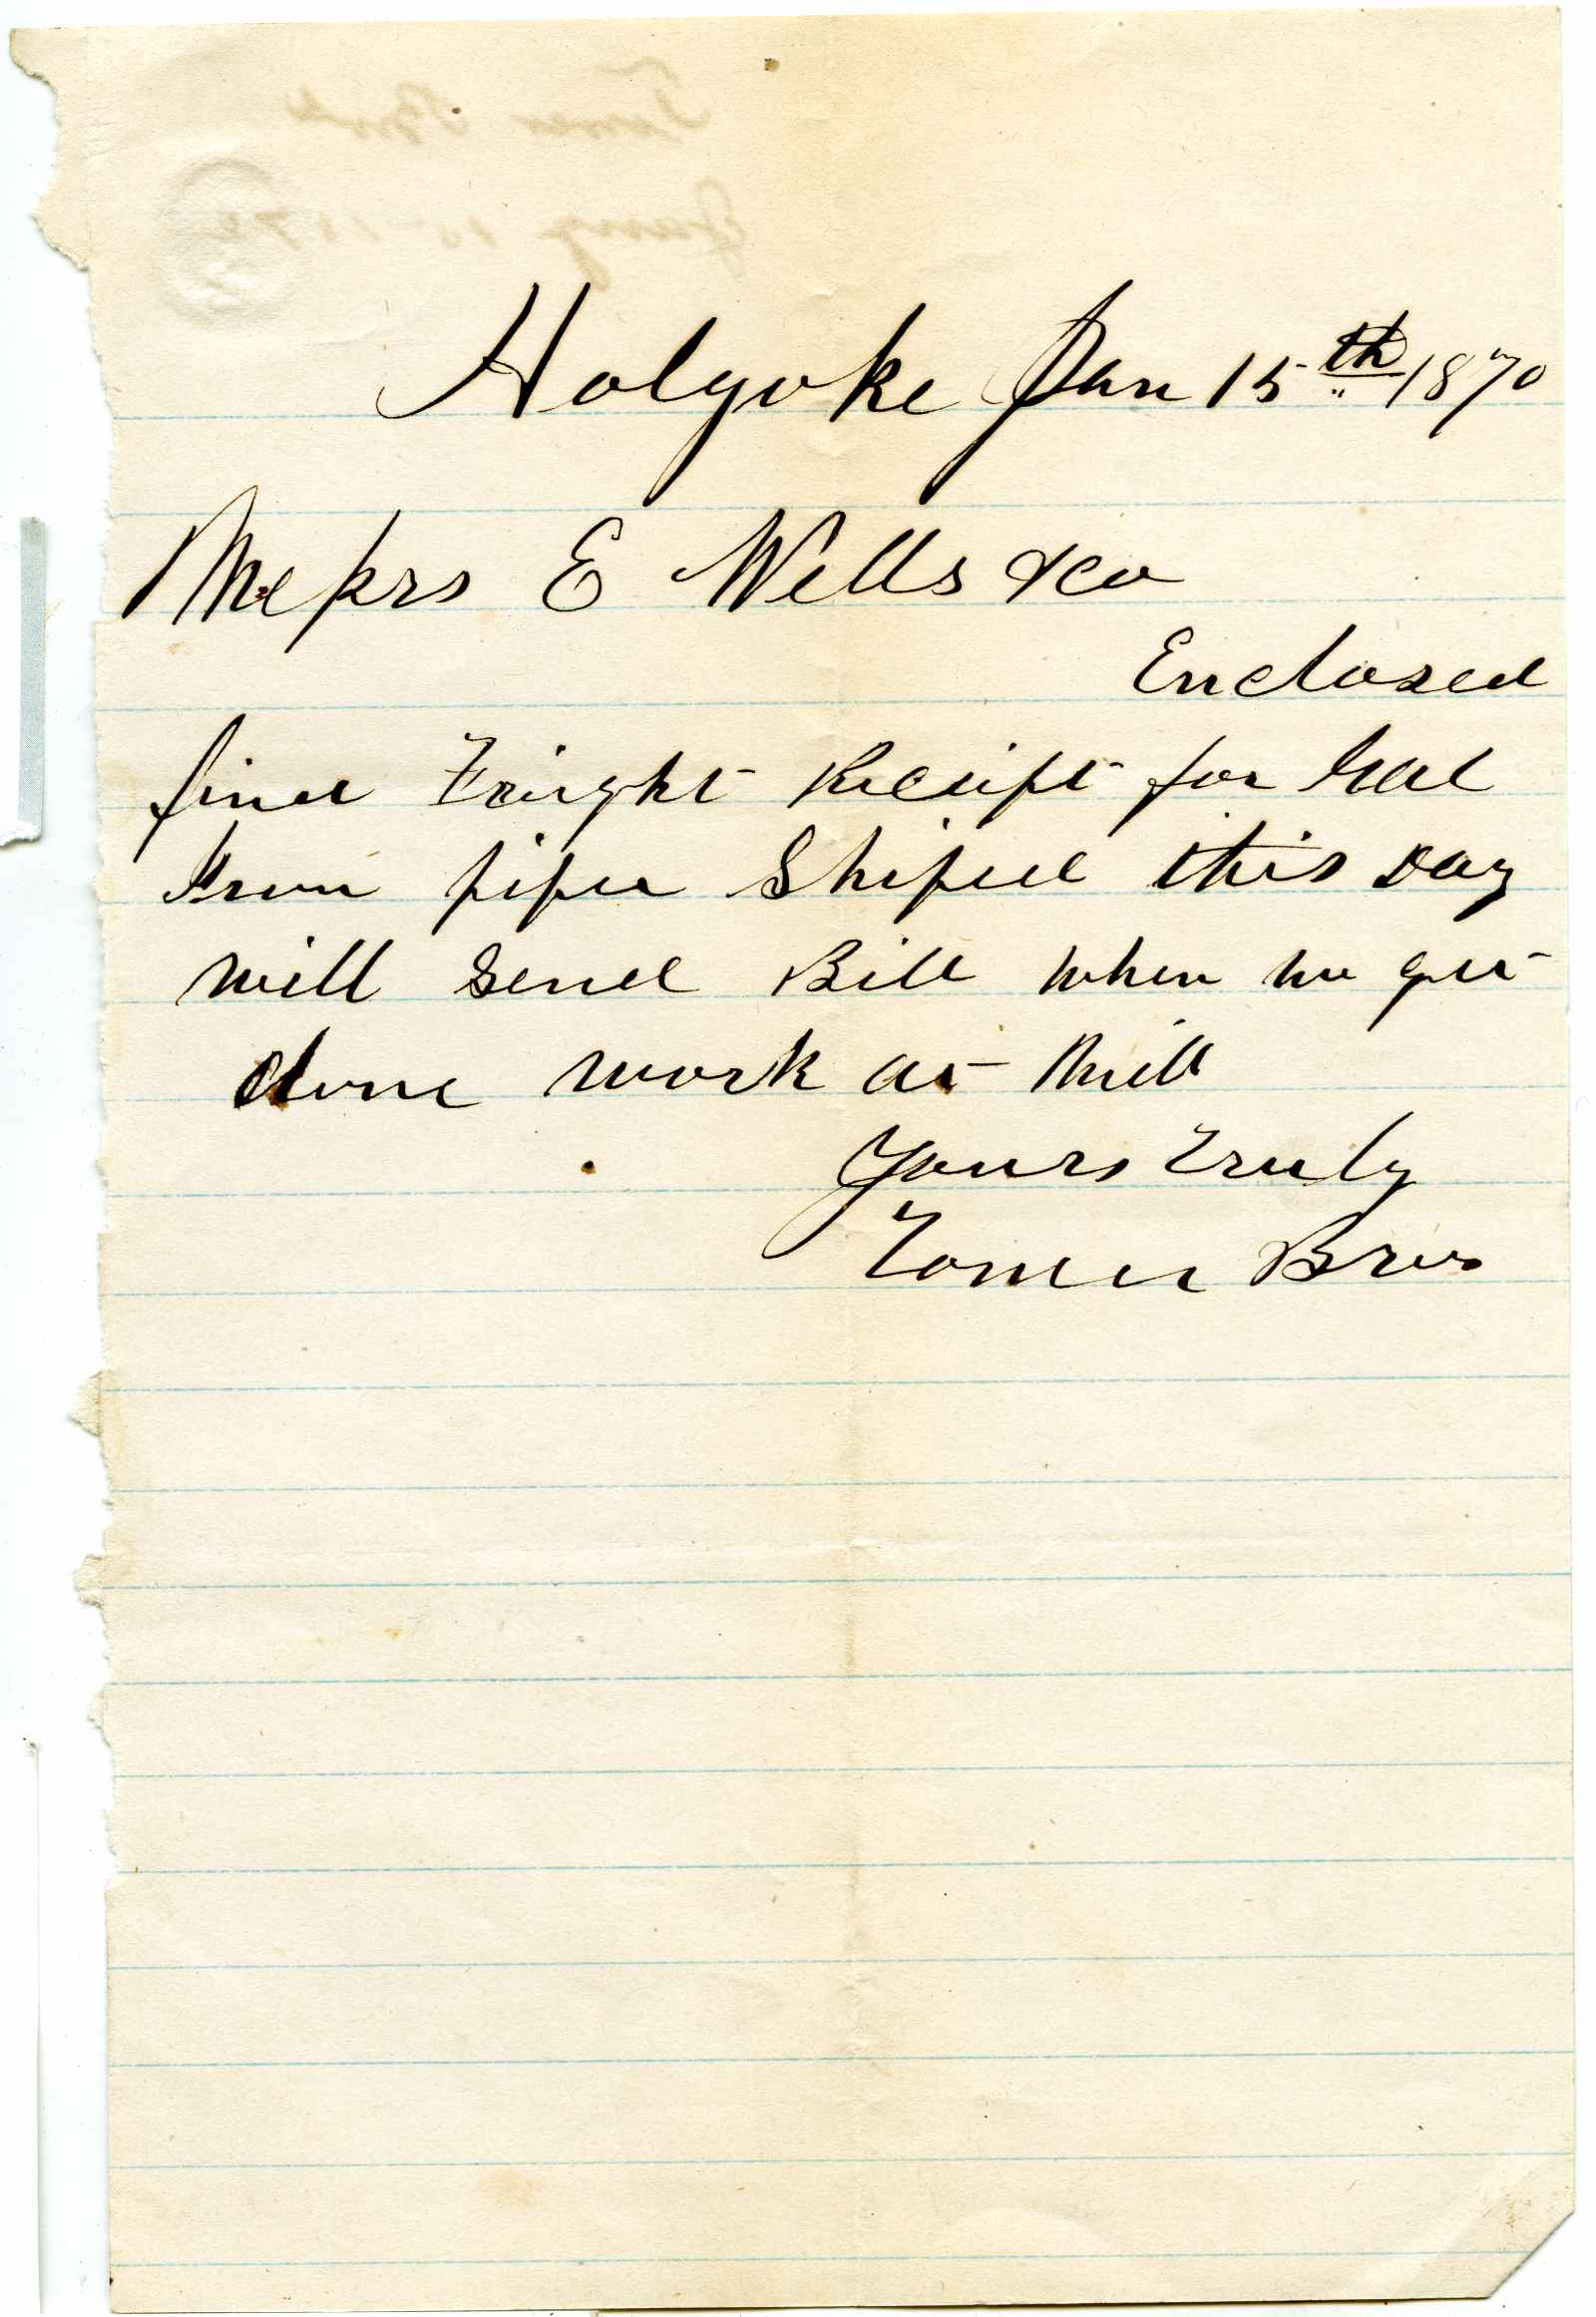 Holyoke Jan 15th 1870
Messrs E Wells & Co
Enclosed
find Freight Receipt for Gal
Iron pipe Shiped this day
will send Bill when we get
done work at Mill
Yours Truly
Tower Bros